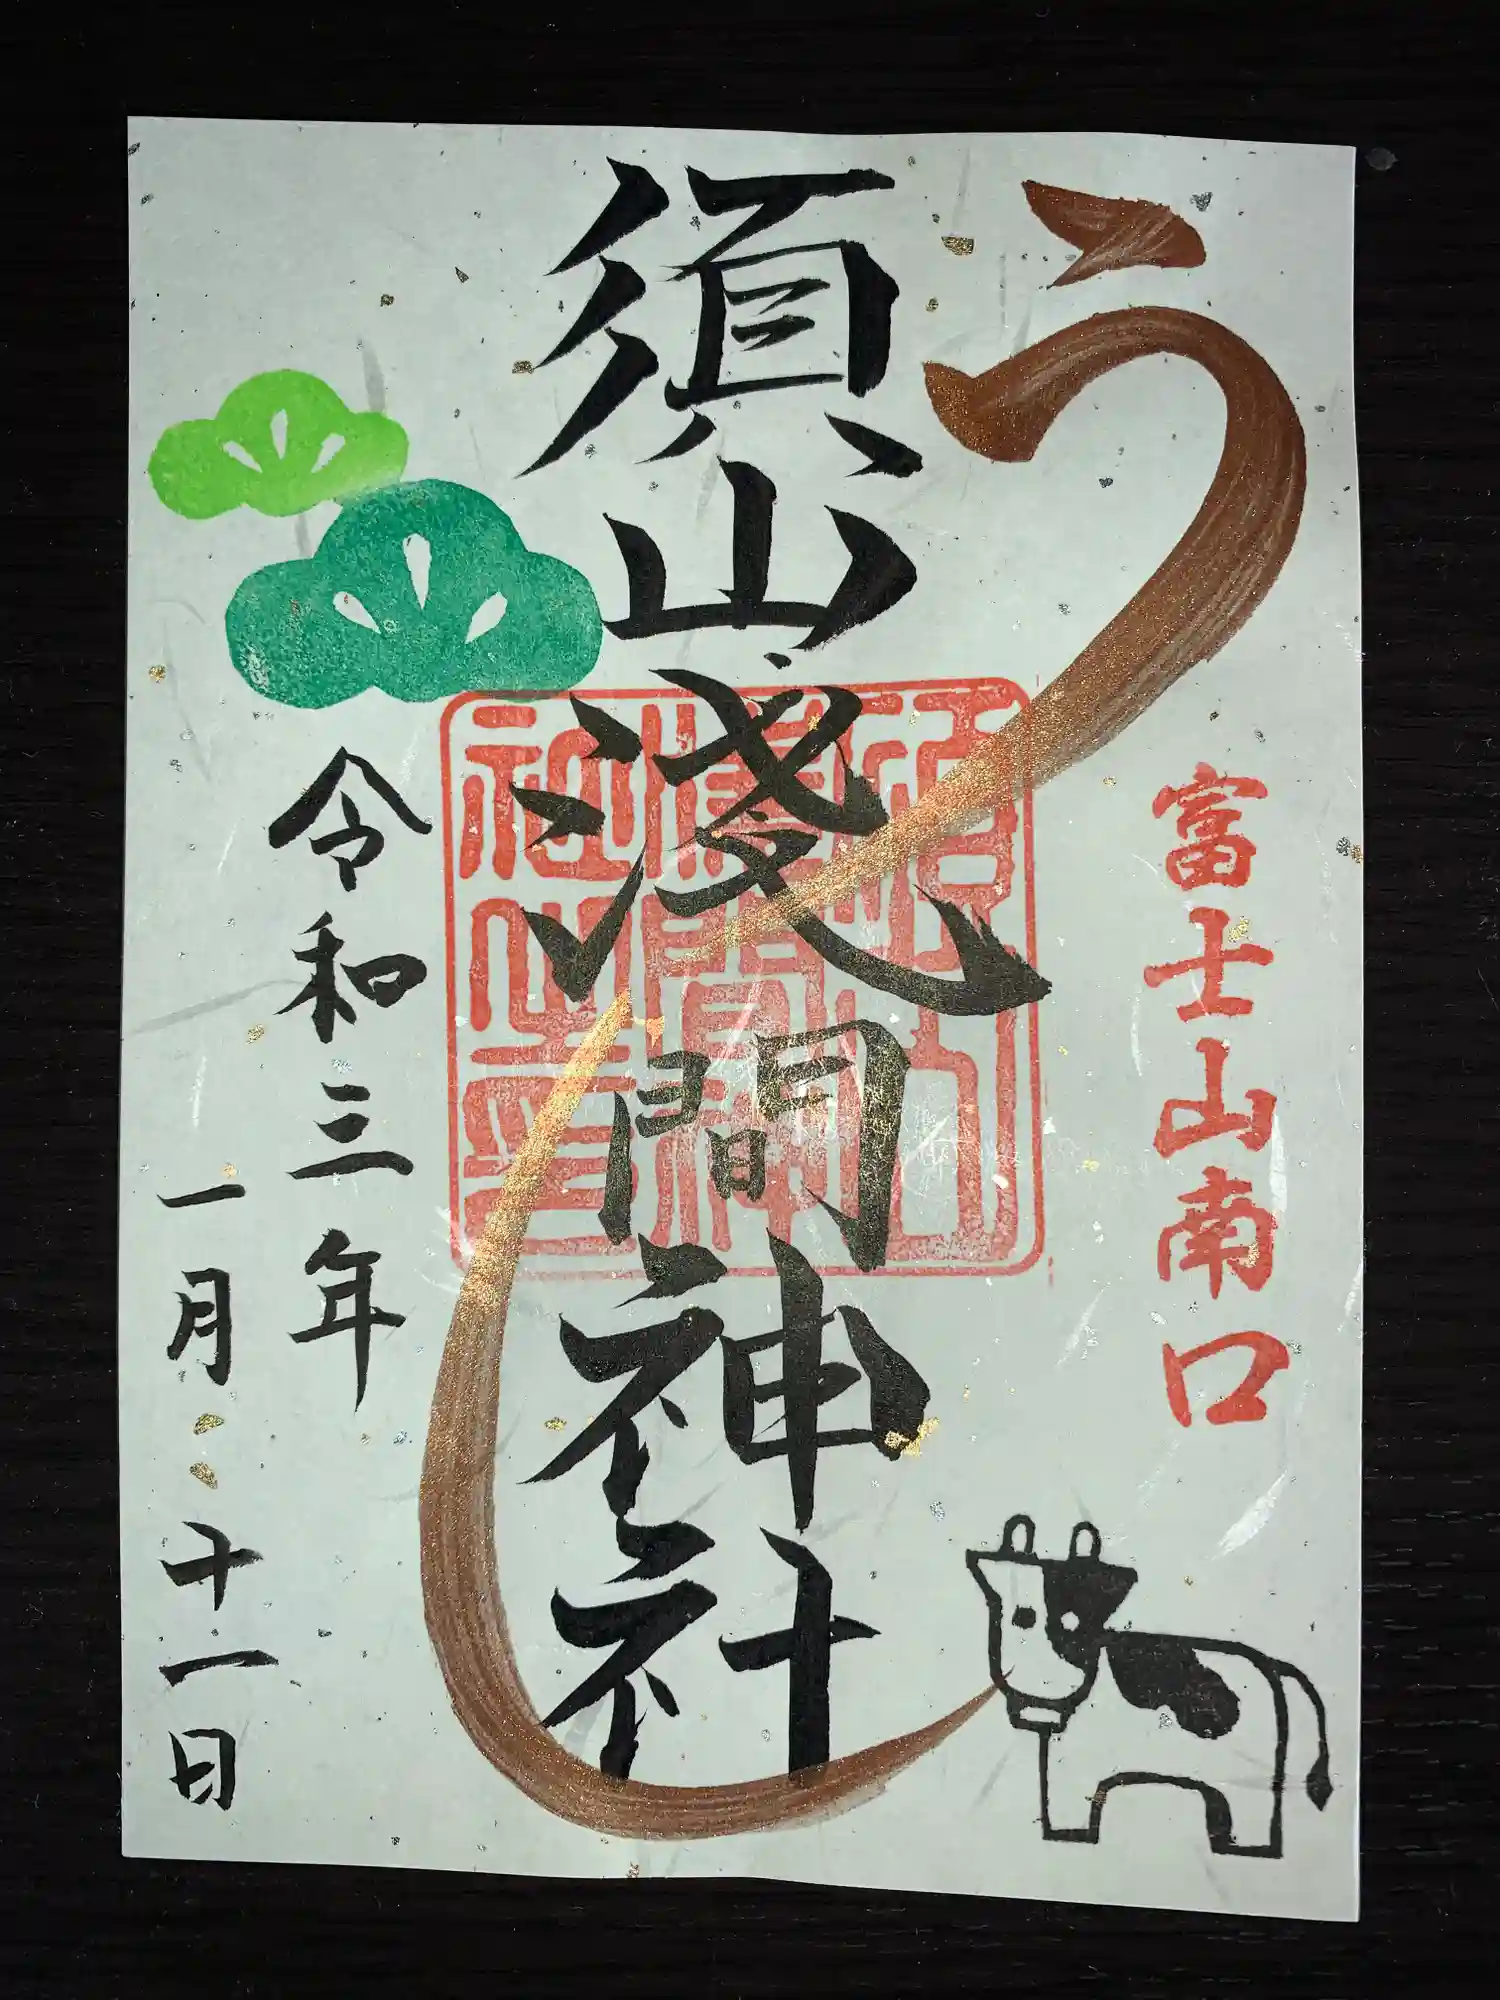 うし
富士山南口
須山淺間神社
令和三年
一月十一日